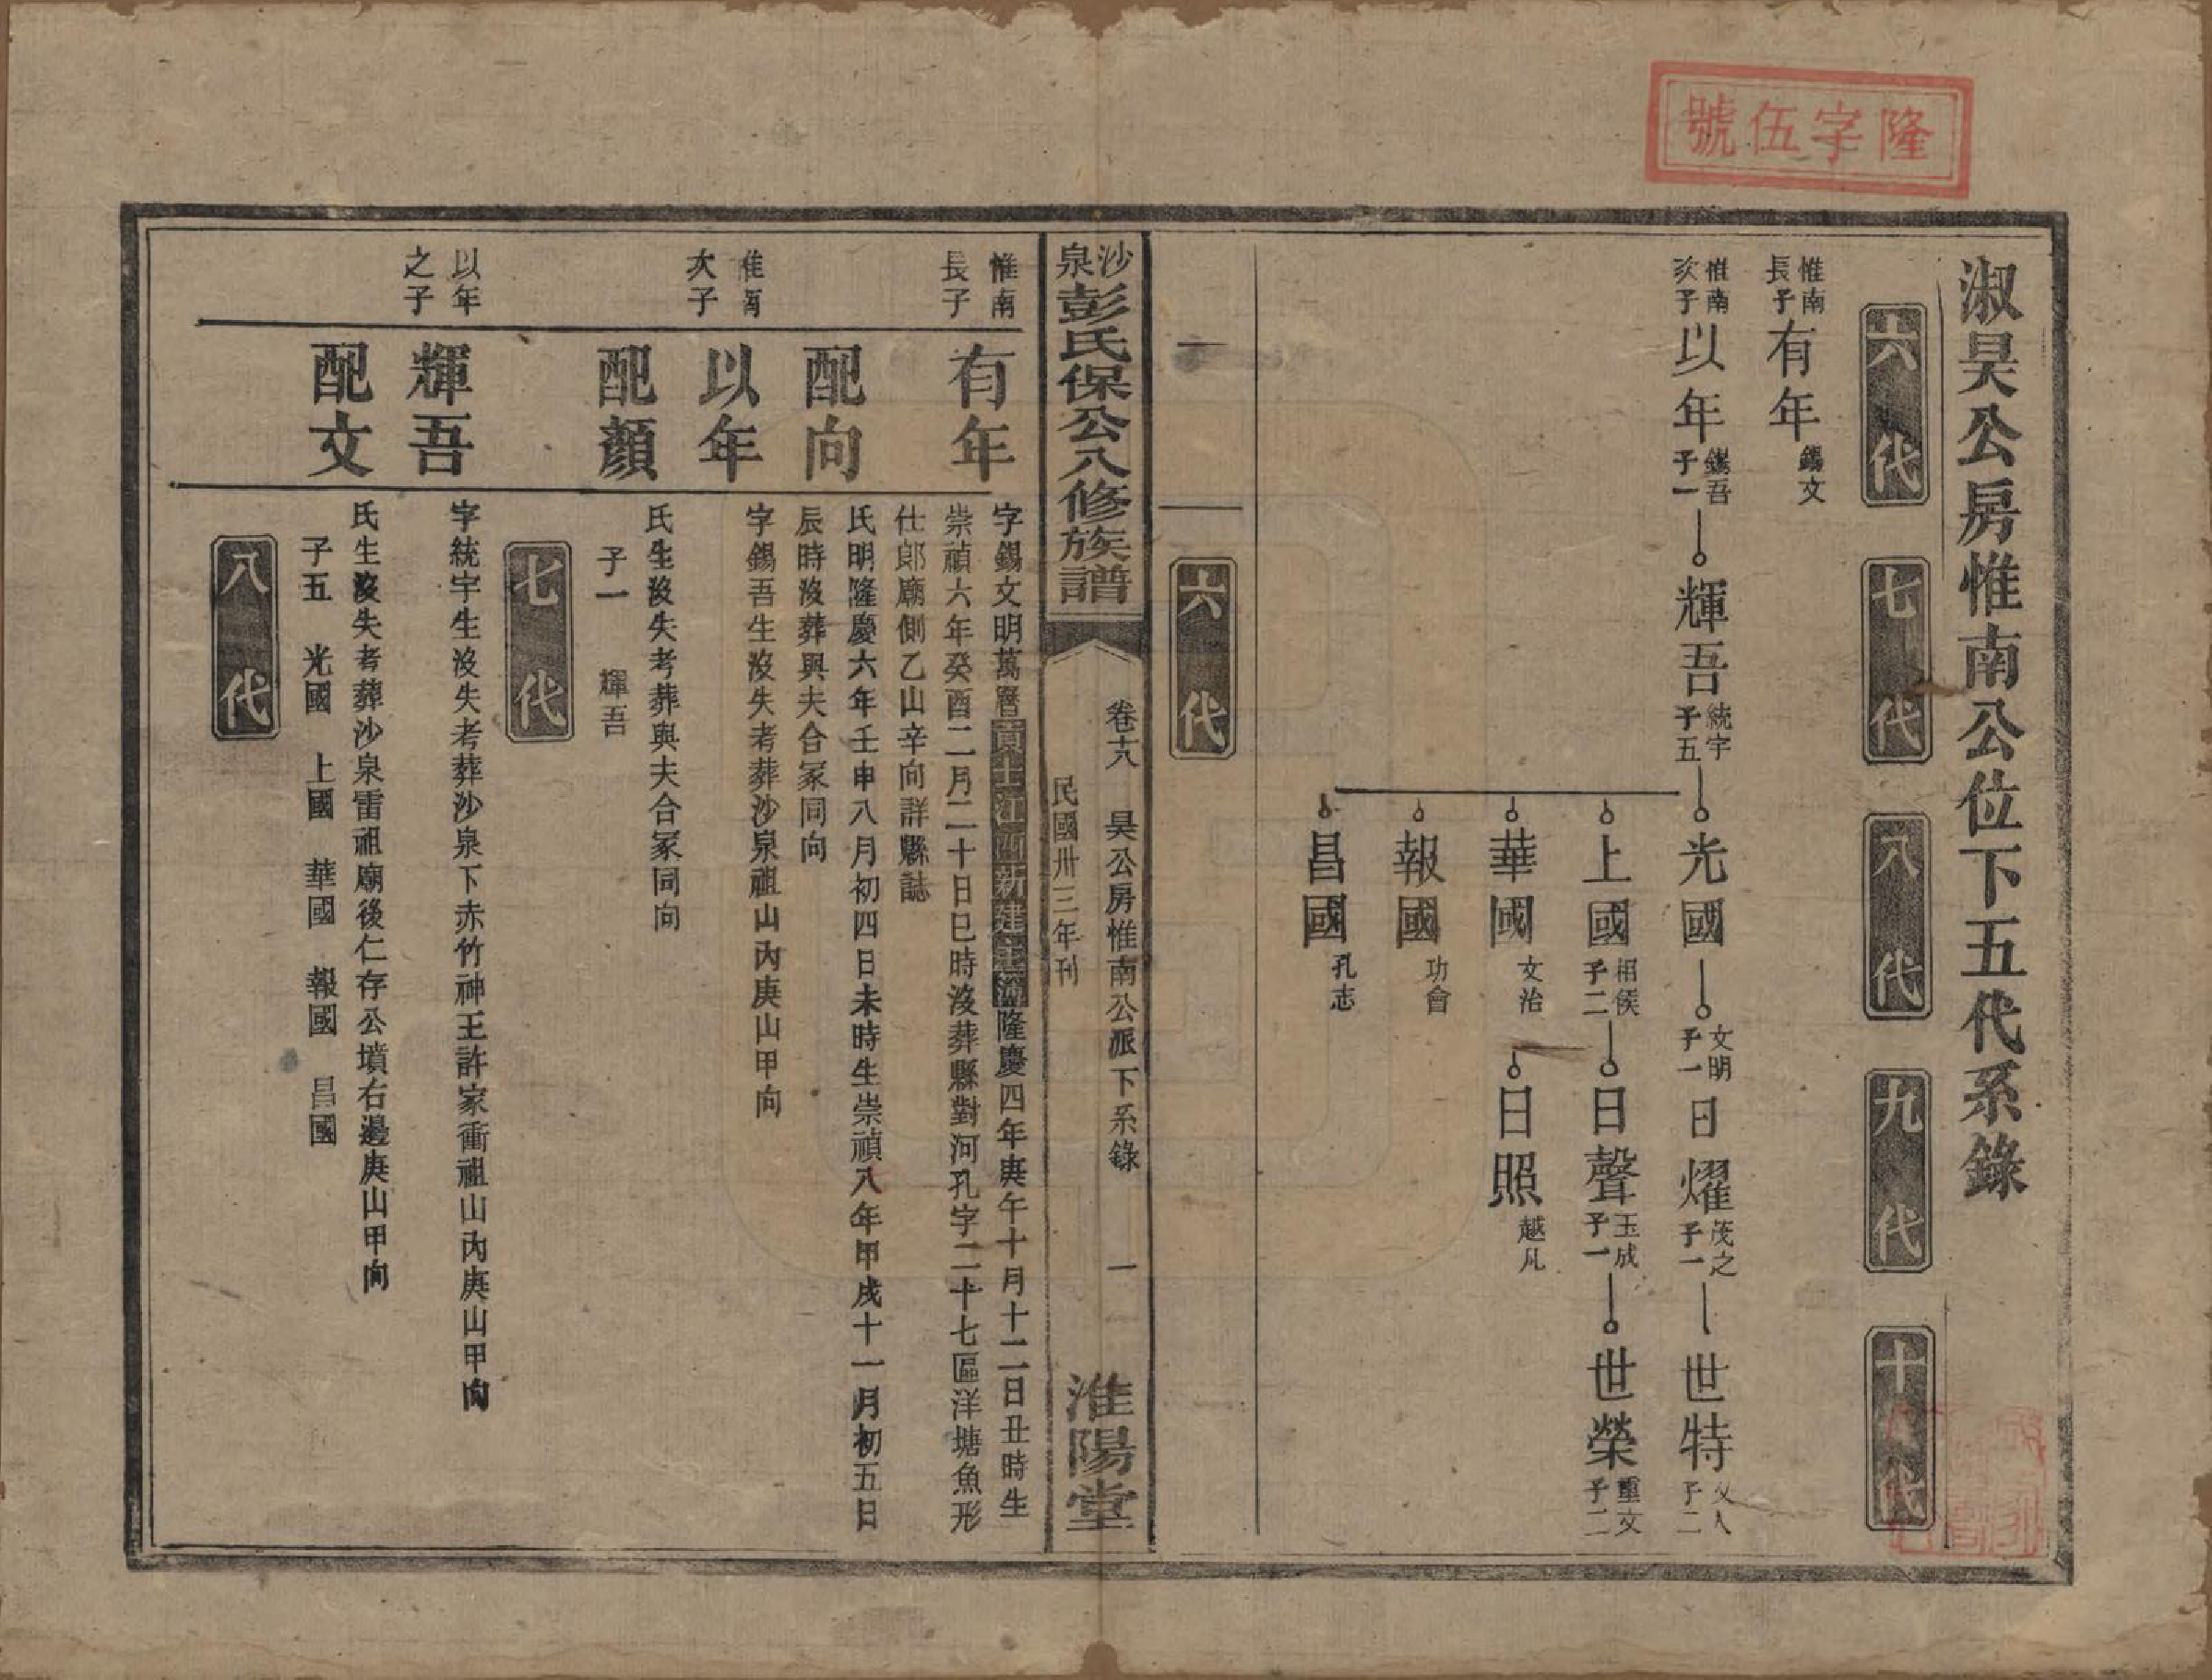 隆字伍號
淑昊公房惟南公位下五代系錄
六代
七代
八代
九代
十代
惟南長子 有年 錫文
惟南次子 以年 錫吾 子一 輝吾 統宇 子五 光國 文明 子一 日燿 茂之 子一 世特 子二
上國 相侯 子二 日聲 玉成 子一 世榮 重文 子二
華國 文治 日照 越凡
報國 功會
昌國 孔志
六代
沙泉彭氏保公八修族譜
卷十八 昊公房惟南公派下系錄 一
民國卅三年刊
淮陽堂
惟南長子
有年
字錫文明萬曆貢士江西新建主簿隆慶四年庚午十月十二日丑時生
崇禎六年癸酉二月二十日巳時沒葬縣對河孔字二十七區洋塘魚形
仕郎廟側乙山辛向詳縣誌
配向
氏明隆慶六年壬申八月初四日未時生崇禎八年甲戌十一月初五日
辰時沒葬與夫合冢同向
惟南次子
以年
字錫吾生沒失考葬沙泉祖山內庚山甲向
配顏
氏生沒失考葬與夫合冢同向
子一 輝吾
七代
以年之子
輝吾
字統宇生沒失考葬沙泉下赤竹神王許家衝祖山內庚山甲向
配文
氏生沒失考葬沙泉雷祖廟後仁存公墳右邊庚山甲向
子五 光國 上國 華國 報國 昌國
八代